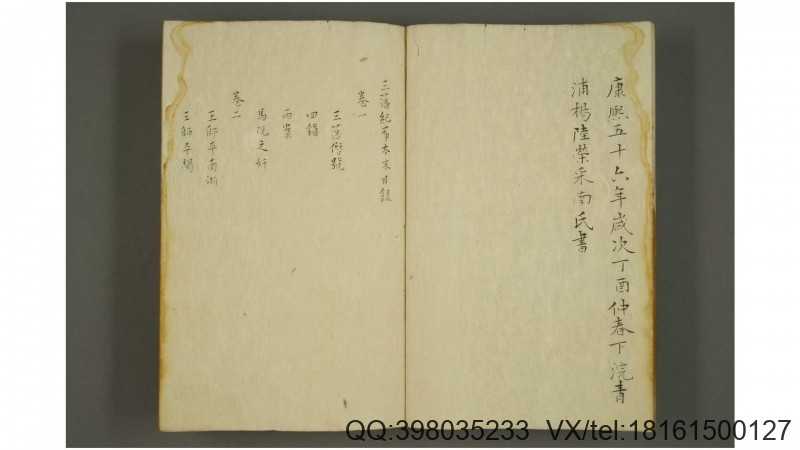 康熙五十六年歲次丁酉仲春下浣青
浦楊陸榮采南氏書
三藩紀事本末目錄
卷一
三藩僭號
四鎮
兩案
馬阮之奸
卷二
王師平南浙
王師平閩
QQ:398035233 VX/tel:18161500127